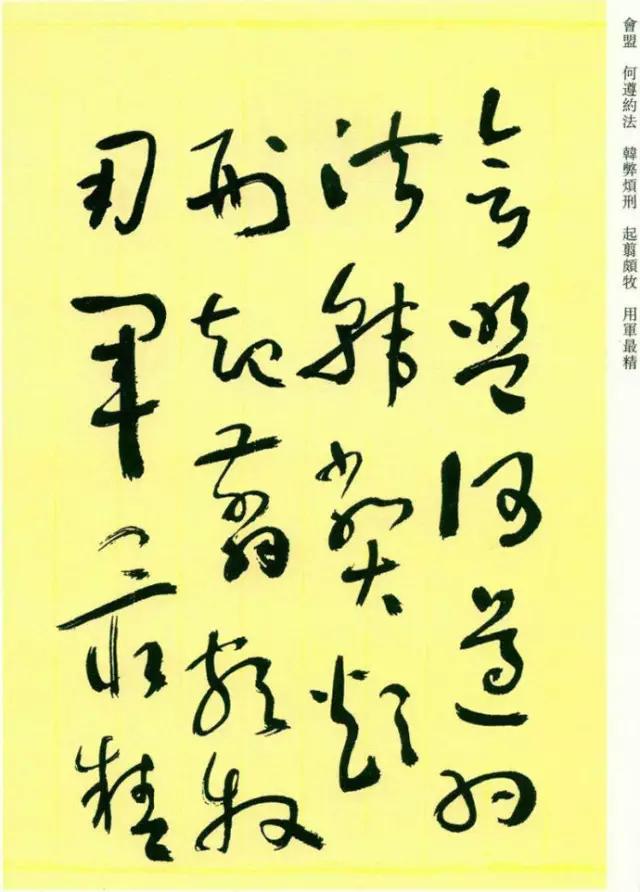 會盟 何遵約法 韓弊煩刑 起翦頗牧 用軍最精
會盟何遵約
法韓弊煩
刑起翦頗牧
用軍最精